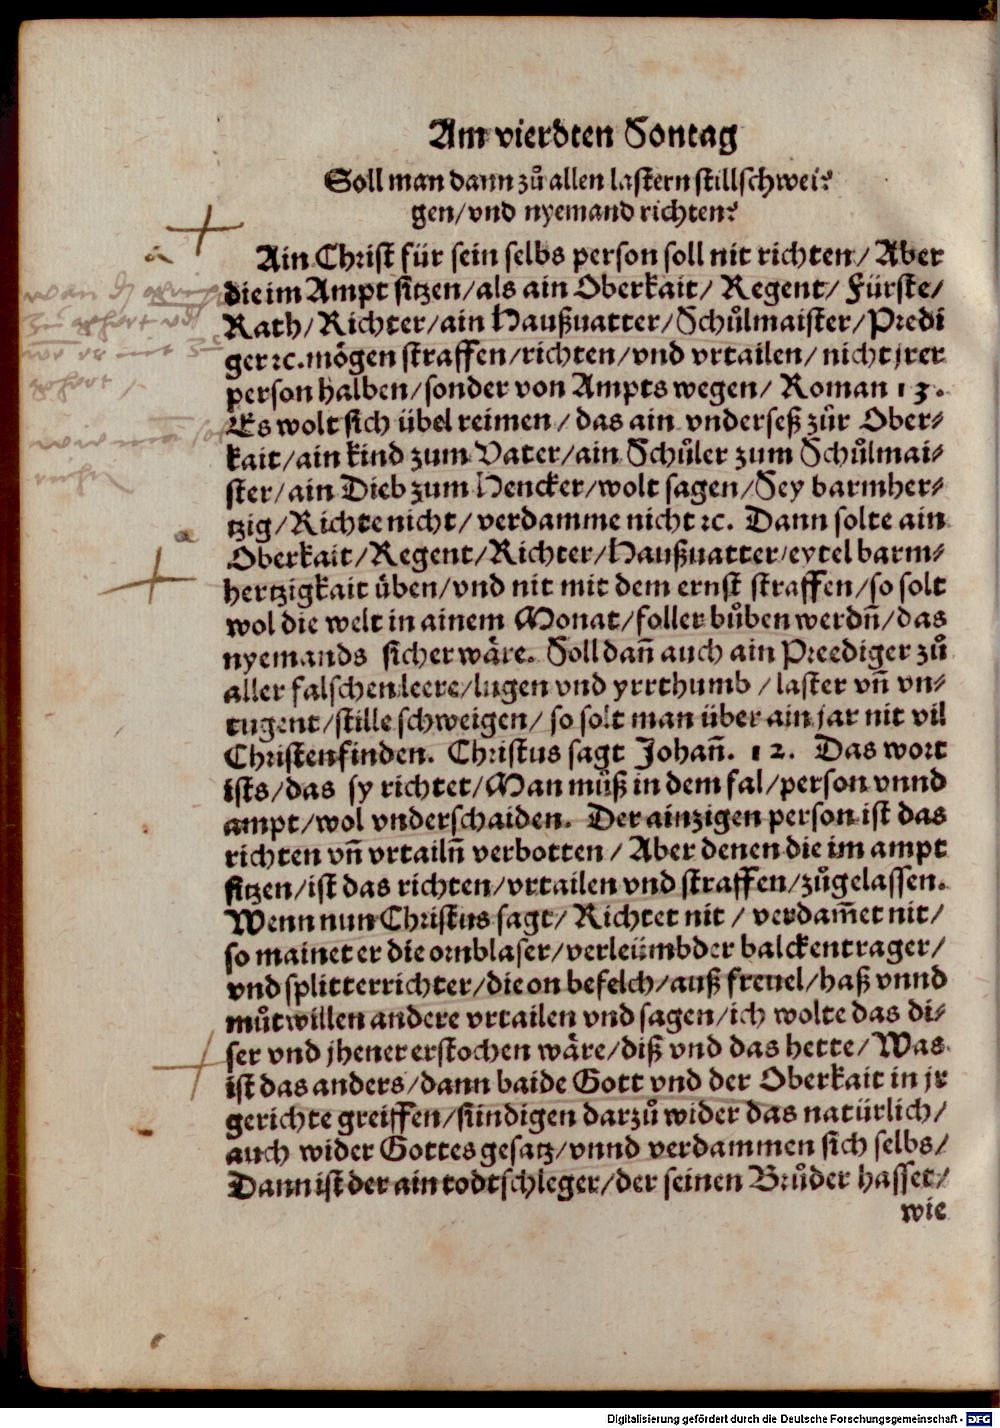 Am vierdten Sontag
Soll man dann zů allen lastern stillschwei⸗
gen/vnd nyemand richten?
Ain Christ für sein selbs person soll nit richten/ Aber
die im Ampt sitzen/als ain Oberkait/ Regent/ Fürste/
Rath/Richter/ain Haußuatter/Schůlmaister/Predi
ger ꝛc. mögen straffen/richten/vnd vrtailen/ nicht jrer
person halben/sonder von Ampts wegen/ Roman 13.
Es wolt sich übel reimen/ das ain vnderseß zůr Ober⸗
kait/ain kind zum Vater/ain Schůler zum Schůlmai⸗
ster/ain Dieb zum Hencker/wolt sagen/Sey barmher⸗
tzig/Richte nicht/ verdamme nicht ꝛc. Dann solte ain
Oberkait/Regent/Richter/Haußuatter/eytel barm⸗
hertzigkait üben/vnd nit mit dem ernst straffen/so solt
wol die welt in ainem Monat/foller bůben werdn̄/das
nyemands sicher wäre. Soll dan̄ auch ain Preediger zů
aller falschen leere/lugen vnd yrrthumb /laster vn̄ vn⸗
tugent/stille schweigen/ so solt man über ain jar nit vil
Christen finden. Christus sagt Johan̄. 12. Das wort
ists/das sy richtet/Man můß in dem fal/person vnnd
ampt/wol vnderschaiden. Der ainzigen person ist das
richten vn̄ vrtailn̄ verbotten/ Aber denen die im ampt
sitzen/ist das richten/vrtailen vnd straffen/zůgelassen.
Wenn nun Christus sagt/ Richtet nit / verdam̄et nit/
so mainet er die ornblaser/verleümbder balckentrager/
vnd splitterrichter/die on befelch/auß freuel/haß vnnd
můtwillen andere vrtailen vnd sagen/ich wolte das di⸗
ser vnd jhener erstochen wäre/diß vnd das hette/Was
ist das anders/dann baide Gott vnd der Oberkait in jr
gerichte greiffen/sündigen darzů wider das natürlich/
auch wider Gottes gesatz/vnnd verdammen sich selbs/
Dann ist der ain todtschleger/der seinen Brůder hasset/
wie
Digitalisierung gefördert durch die Deutsche Forschungsgemeinschaft - DFG